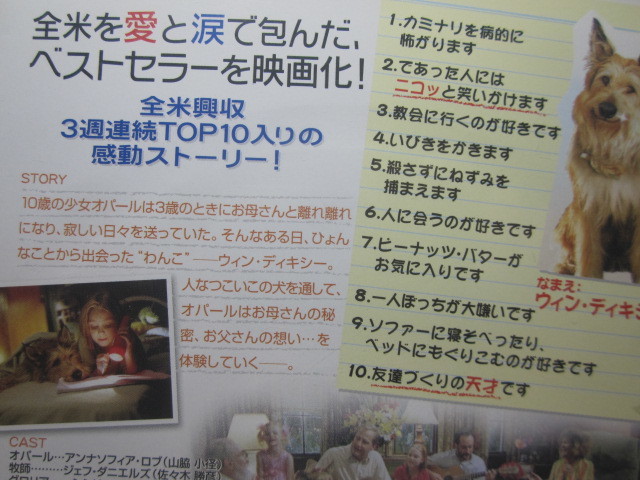 全米を愛と涙で包んだ、
ベストセラーを映画化!
全米興収
3週連続TOP10入りの
感動ストーリー!
STORY
10歳の少女オパールは3歳のときにお母さんと離れ離れ
になり、寂しい日々を送っていた。そんなある日、ひょん
なことから出会った“わんこ”——ウィン・ディキシー。
人なつこいこの犬を通して、
オパールはお母さんの秘
密、お父さんの想い…を
体験していく——。
1.カミナリを病的に
怖がります
2.であった人には
ニコッと笑いかけます
3.教会に行くのが好きです
4.いびきをかきます
5.殺さずにねずみを
捕まえます
6.人に会うのが好きです
7.ピーナッツ・バターが
お気に入りです
8.一人ぼっちが大嫌いです
9.ソファーに寝そべったり、
ベッドにもぐりこむのが好きです
10.友達づくりの天才です
なまえ:
ウィン・ディキシ
CAST
オパール…アンナソフィア・ロブ(山脇 小径)
牧師………ジェフ・ダニエルズ(佐々木 勝彦)